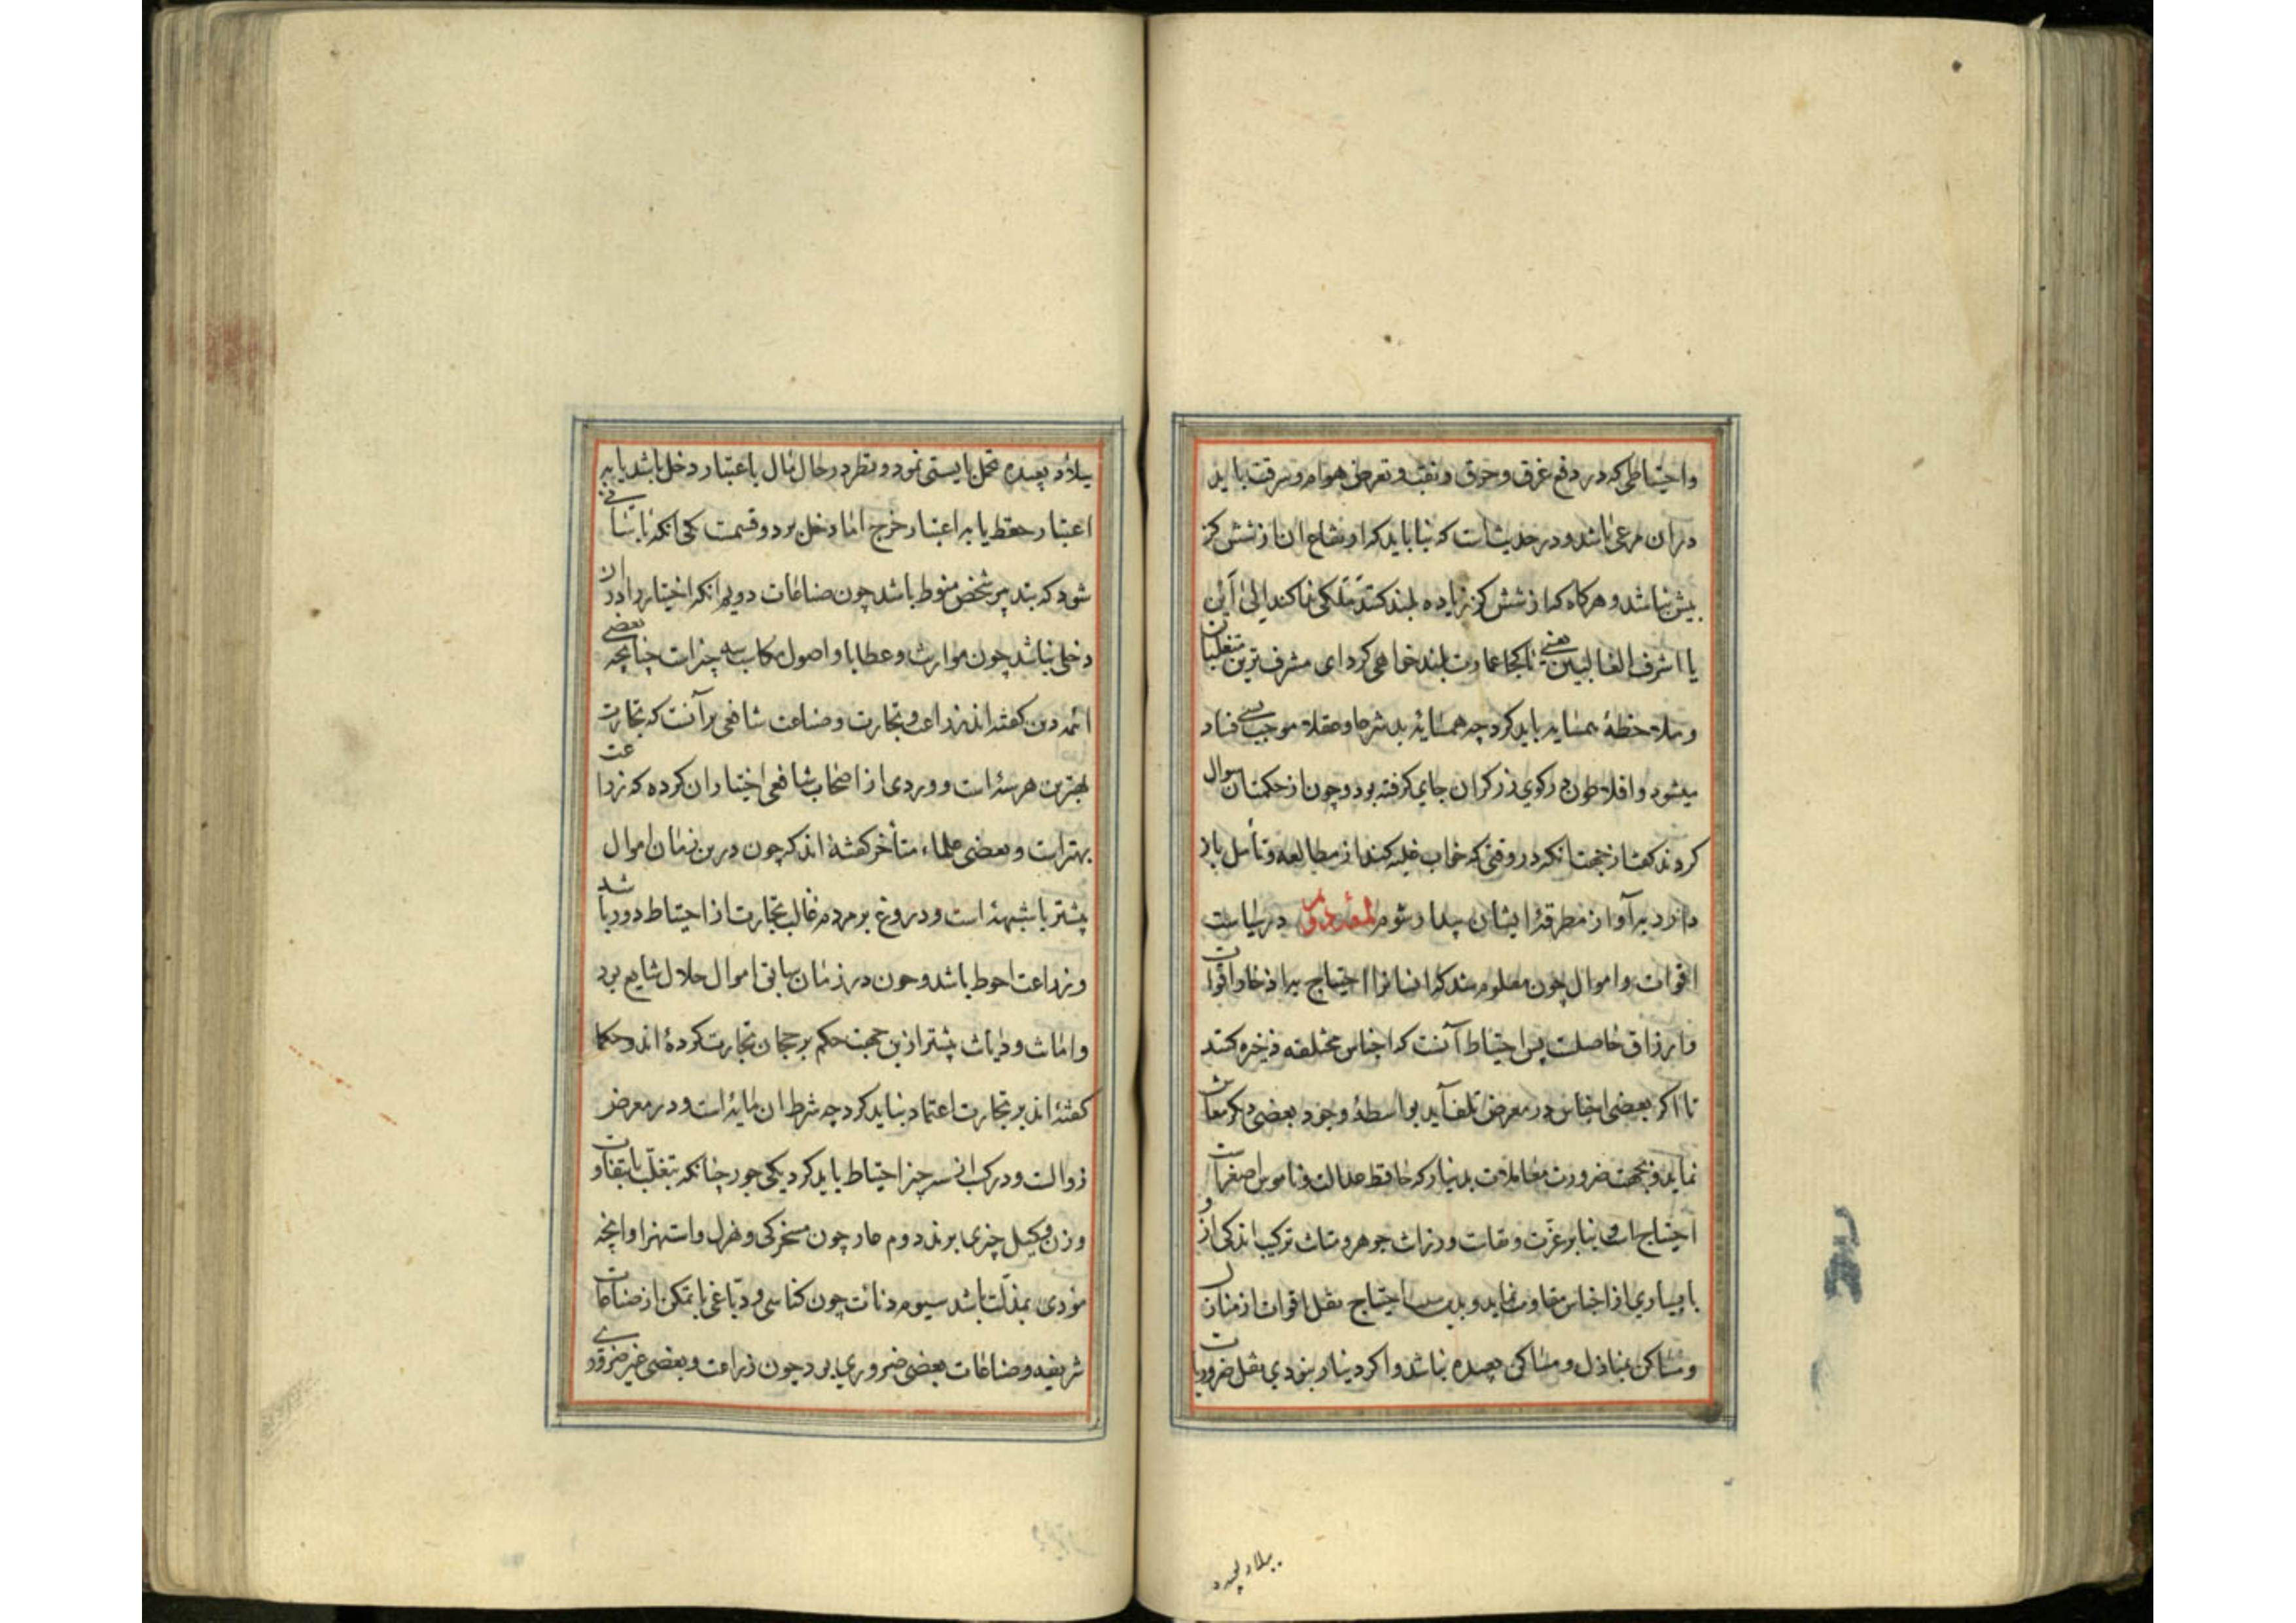 واحتیاطی که در دفع غرق و حرق و نقب و تعرض هوام و سرقت باید
دران مرعی باشد و در حدیث است که بنا باید که ارتفاع ان از شش کز
بیش نباشد و هرکاه که از شش کز زیاده بلند کنند ملکی ندا کند الی این
یا اشرف الغالبین یعنی تا کجا عمارت بلند خواهی کرد ای مشرف ترین متغلبان
و ملاحظهٔ همسایه باید کرد چه همسایهٔ بد شرعا و عقلا موجب بسی فساد
میشود و افلاطون در کوی زرکران جای کرفته بود و چون از حکمت آن سوال
کردند کفت از جهت انکه در وقتی که خواب غلبه کند از مطالعه و تأمل باز
دارد برآواز مطرقهٔ ایشان بیدار شوم لمعهٔ دوم در سیاست
اقوات و اموال چون معلوم شد که انسانرا احتیاج به ادخار اقوات
و ارزاق حاصلست پس احتیاط آنست که اجناس مختلفه ذخیره کنند
تا اکر بعضی اجناس در معرض تلف آید بواسطهٔ وجود بعضی دیکر معاش
نماید و بجهت ضرورت معاملات بدینار که حافظ عدالت و ناموس اصغر است
احتیاج است و بنا بر عزت و ثقات و رزانت جوهر و متانت ترکیب اندکی از و
با بسیاری از اجناس مقاومت نماید و بدین سبب احتیاج بنقل اقوات از منازل
و مساکن بمنازل و مساکن بعیده نباشد و اکر دینار نبودی نقل ضروریات
ببلاد بعیده
ببلاد بعیده تحمل بایستی نمود و نظر در حال مال باعتبار دخل باشد یا به
اعتبار حفظ یا به اعتبار خرج اما دخل بر دو قسمت یکی انکه ناشی
شود که بتدبیر شخص منوط باشد چون صناعات دویم انکه اختیار را در ان
دخلی نباشد چون مواریث و عطایا و اصول مکاسب سه چیز است چنانچه بعضی
ائمه دین کفته اند زراعت و تجارت و صناعت شافعی برآنست که تجارت
بهترین هر سه است و وردی از اصحاب شافعی اختیار ان کرده که زراعت
بهتر است و بعضی علماء متأخر کفته اند که چون درین زمان اموال
بیشتر با شبهه است و دروغ بر مردم غالب تجارت از احتیاط دور باشد
و زراعت احوط باشد و چون در زمان سابق اموال حلال شایع بود
و امانت و دیانت بیشتر ازین جهت حکم برجحان تجارت کرده اند و حکما
کفته اند بر تجارت اعتماد نباید کرد چه شرط ان مایه است و در معرض
زوالست و در کسب از سه چیز احتیاط باید کرد یکی جور چنانکه بتغلب یا بتفاوت
وزن و کیل چیزی برند دوم عار چون مسخرکی و هزل و استهزا و انچه
مودی بمذلت باشد سیوم دنائت چون کناسی و دباغی با تمکن از صناعات
شریفه و صناعات بعضی ضروری بود چون زراعت و بعضی غیر ضروری و